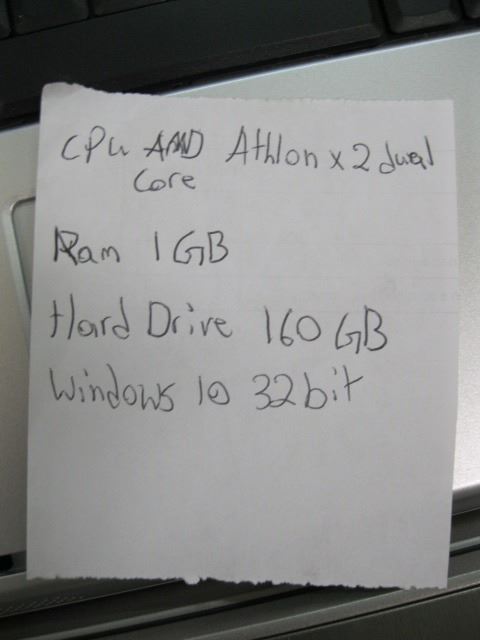 CPU AMD Athlon x 2 dual
Core
Ram 1 GB
Hard Drive 160 GB
Windows 10 32 bit